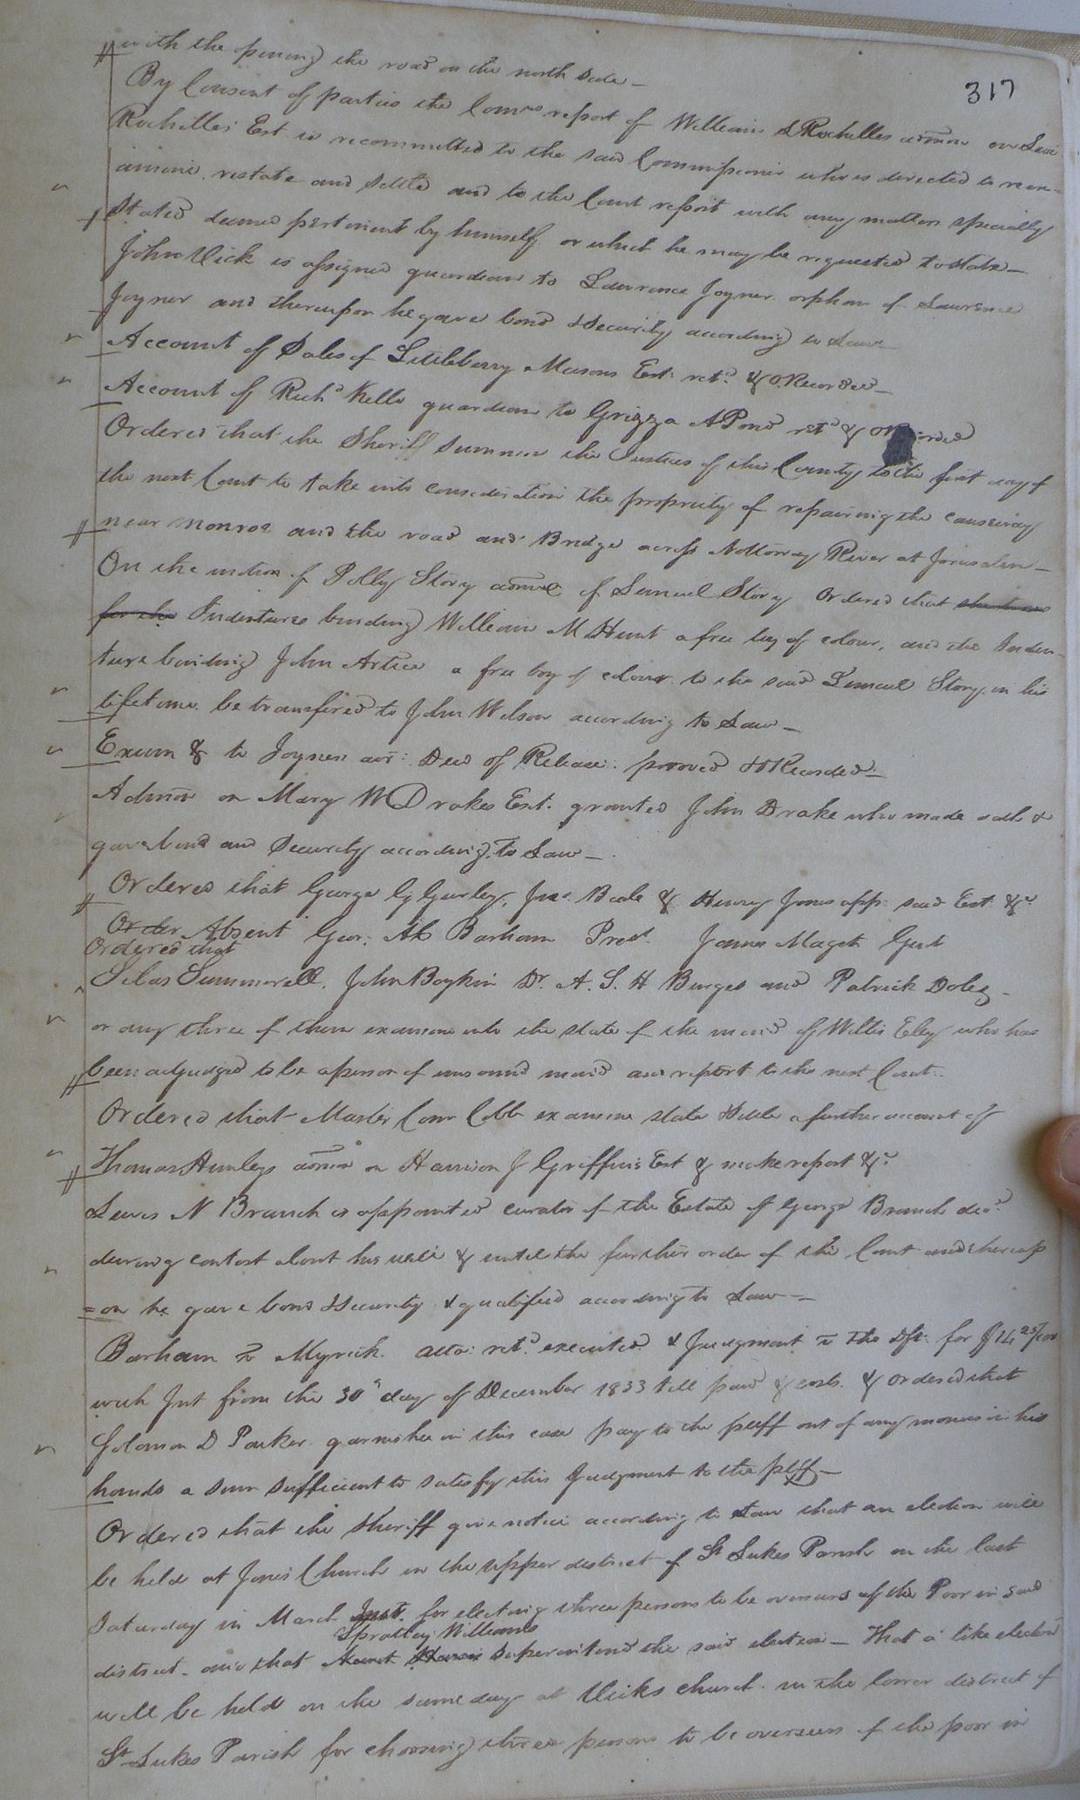 317
with the opening the road on the north side —
By Consent of parties the Comrs report of William Rochelles admon on Levi
Rochelles Est is recommitted to the said Commissioner who is directed to reex-
amine restate and settle and to the Court report with any matters specially
stated deemed pertinent by himself or which he may be requested to state —
John Vick is assigned guardian to Lawrence Joyner orphan of Lawrence
Joyner and thereupon he gave bond & security according to Law
Account of Sales of Littleberry Masons Est: retd. & O Recorded —
Account of Richd Kello guardian to Grizza A Pond retd & O Recorded
Ordered that the Sheriff summon the Justices of this County to the first day of
the next Court to take into consideration the propriety of repairing the causeway
near Monroe and the road and Bridge across Nottoway River at Jerusalem —
On the motion of Polly Story admx of Lemuel Story Ordered that
for the Indentures binding William M Hunt a free boy of colour, and the Inden-
ture binding John Artice a free boy of colour to the said Lemuel Story in his
lifetime be transfered to John Wilson according to Law —
Exum & to Joyner Deed of Release proved & O Recorded —
Admon on Mary W Drakes Est. granted John Drake who made oath &
gave bond and Security according to Law —
Ordered that George Gurley, Jno. Beale & Henry Jones app: said Est. &c
Order Absent Geo: Barham Prest. James Maget Gent
Ordered that
Silas Summerell, John Boykin Dr. A. S. H Burges and Patrick Doles —
or any three of them examine into the state of the mind of Willis Eley who has
been adjudged to be a person of unsound mind and report to the next Court.
Ordered that Master Comr Cobb examine state & settle a further account of
Thomas Hunleys admon on Harrison J Griffins Est & make report &c
Lewis N Branch is appointed curator of the Estate of George Branch decd.
during contest about his will & until the further order of the Court and thereup
=on he gave bond & security & qualified according to Law —
Barham vs Myrick atta: retd. executed & Judgment vs the Dft. for $14 25/100
with Int from the 30th day of December 1833 till paid & costs & ordered that
Solomon D Parker garnishee in this case pay to the pltff out of any monies in his
hands a sum sufficient to satisfy this Judgment to the pltff —
Ordered that the Sheriff give notice according to Law that an election will
be held at Jones Church in the upper district of St Lukes Parish on the last
Saturday in March Inst. for electing three persons to be overseers of the Poor in said
Spratley Williams
district and that superintend the said election — That a like election
will be held on the same day at Vicks church in the lower district of
St Lukes Parish for choosing three persons to be overseers of the poor in